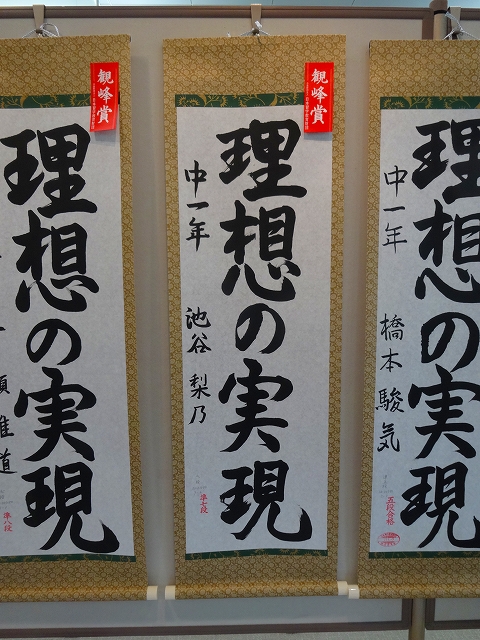 理想の実現
中一年 橋本駿気
五段合格
観峰賞
理想の実現
中一年 池谷梨乃
準七段
観峰賞
理想の実現
雅道
準八段